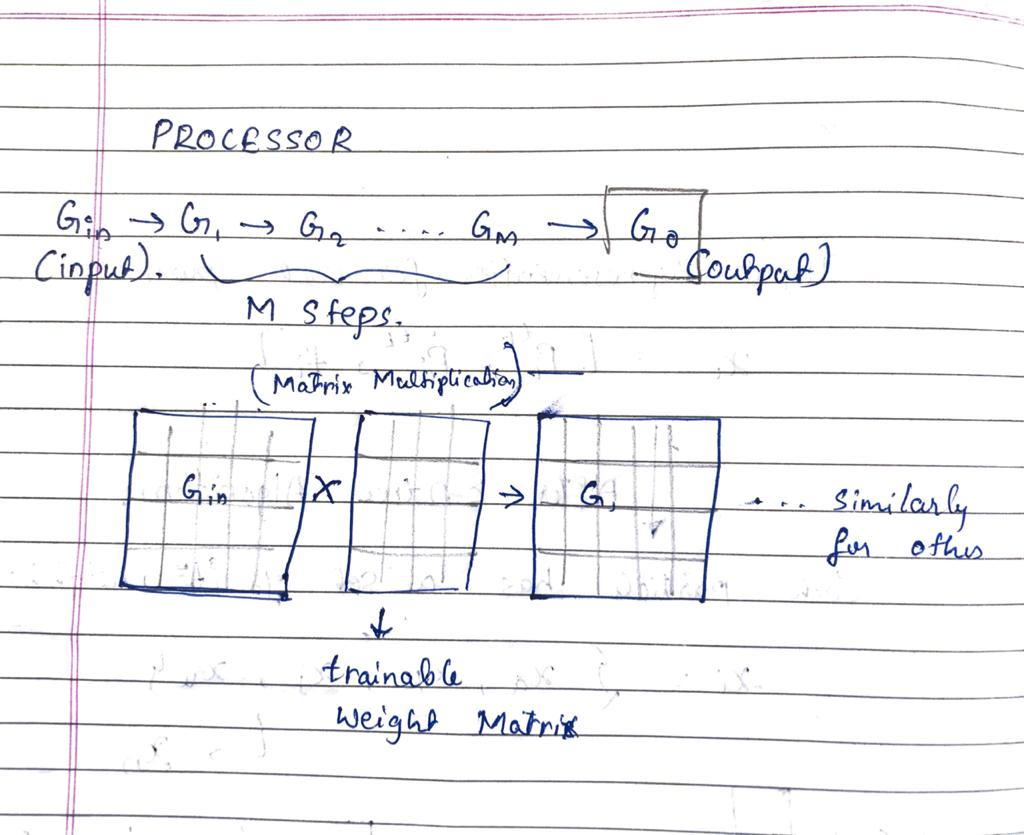 PROCESSOR
Gin → G1 → G2 ..... GM → G0
(input). (output)
M steps.
(Matrix Multiplication)
Gin X → G1 ... similarly
for others
↓
trainable
weight Matrix